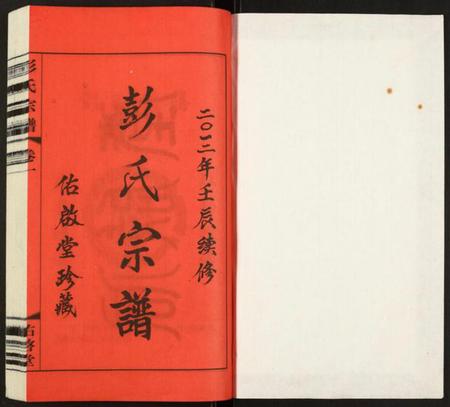 二〇一二年壬辰续修
彭氏宗譜
佑啟堂珍藏
彭氏宗譜
卷一
佑啓堂